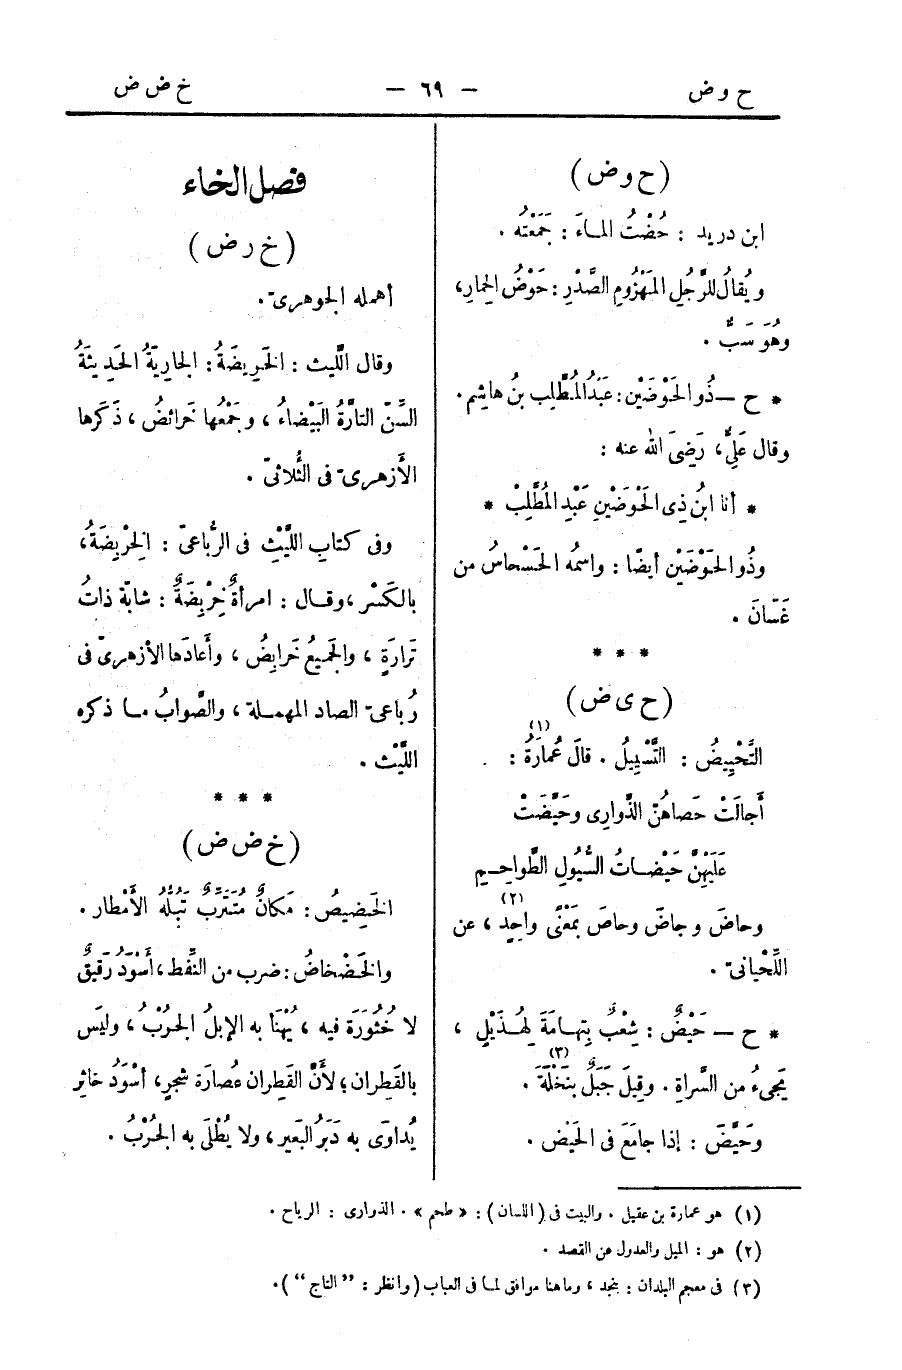 ح و ض
— ٦٩ —
خ ض ض
(ح و ض)
ابن دريد : حُضْتُ المـاءَ : جَمَعْتُه .
ويُقالُ للرَّجُلِ المَهْزُومِ الصَّدْرِ : حَوْضُ الحِمارِ،
وهُوَ سَبٌّ .
* ح — ذُو الحَوْضَيْنِ : عَبْدُ المُطَّلِب بنُ هاشِم .
وقال عَلِيٌّ، رَضِيَ الله عنه :
* أنا ابنُ ذِى الحَوْضَيْنِ عَبْدِ المُطَّلِبْ *
وذُو الحَوْضَيْن أيضًا : واسمُه الحَسْحاسُ من
غَسّانَ .
* * *
(ح ى ض)
التَّحْيِيضُ : التَّسْيِيلُ . قالَ عُمارَةُ (١) :
أَجالَتْ حَصاهُنّ الذَّوارِى وحَيَّضَتْ
عَلَيْهِنَّ حَيْضـاتُ السُّيُولِ الطَّواحِـمِ
وحاضَ وجاضَ وحاصَ بمَعْنًى واحِدٍ (٢) ، عن
اللِّحْيانىّ .
* ح — حَيْضٌ : شِعْبٌ بِتهـامَةَ لِهُـذَيْلٍ ،
يَجىءُ من السَّراةِ . وقِيلَ جَبَلٌ بنَخْلَةَ (٣) .
وحَيَّضَ : إذا جامَعَ فى الحَيْض .
فصل الخاء
(خ ر ض)
أهمله الجوهرىّ .
وقال اللَّيث : الخَرِيضَةُ : الجارِيَةُ الحَدِيثَةُ
السِّنّ التارَّةُ البَيْضاءُ ، وجَمْعُها خَرائضُ ، ذَكَرها
الأَزهرىّ فى الثُّلاثىّ .
وفى كتابِ اللَّيْثِ فى الرُّباعىّ : الخِرْبِضَةُ،
بالكَسْر ، وقـال : امرأةٌ خِرْبِضَةٌ : شابّة ذاتُ
تَرارَةٍ ، والجَميعُ خَرابِضُ ، وأَعادَها الأزهرىّ فى
رُباعىّ الصاد المهمـلة ، والصَّوابُ مـا ذكره
اللَّيْث .
* * *
(خ ض ض)
الخَضِيضُ : مَكانٌ مُتَتَرِّبٌ تَبُلُّه الأَمْطار .
والخَضْخاضُ : ضرب من النِّفْط ، أَسْوَدُ رَقيقٌ
لا خُثُورَة فيه ، يُهْنَأ به الإبلُ الجُرْبُ ، وليْسَ
بالقَطِران ؛ لأَنَّ القَطِران عُصارَة شَجرٍ ، أَسْوَدُ خاثِر
يُداوَى به دَبَرُ البَعير ، ولا يُطْلَى به الجُرْبُ .
(١) هو عمارة بن عقيل . والبيت فى (اللسان) : « طحم » . الذوارى : الرياح .
(٢) هو : الميل والعدول عن القصد .
(٣) فى معجم البلدان : بنجد ، وما هنا موافق لما فى العباب (وانظر : "التاج") .